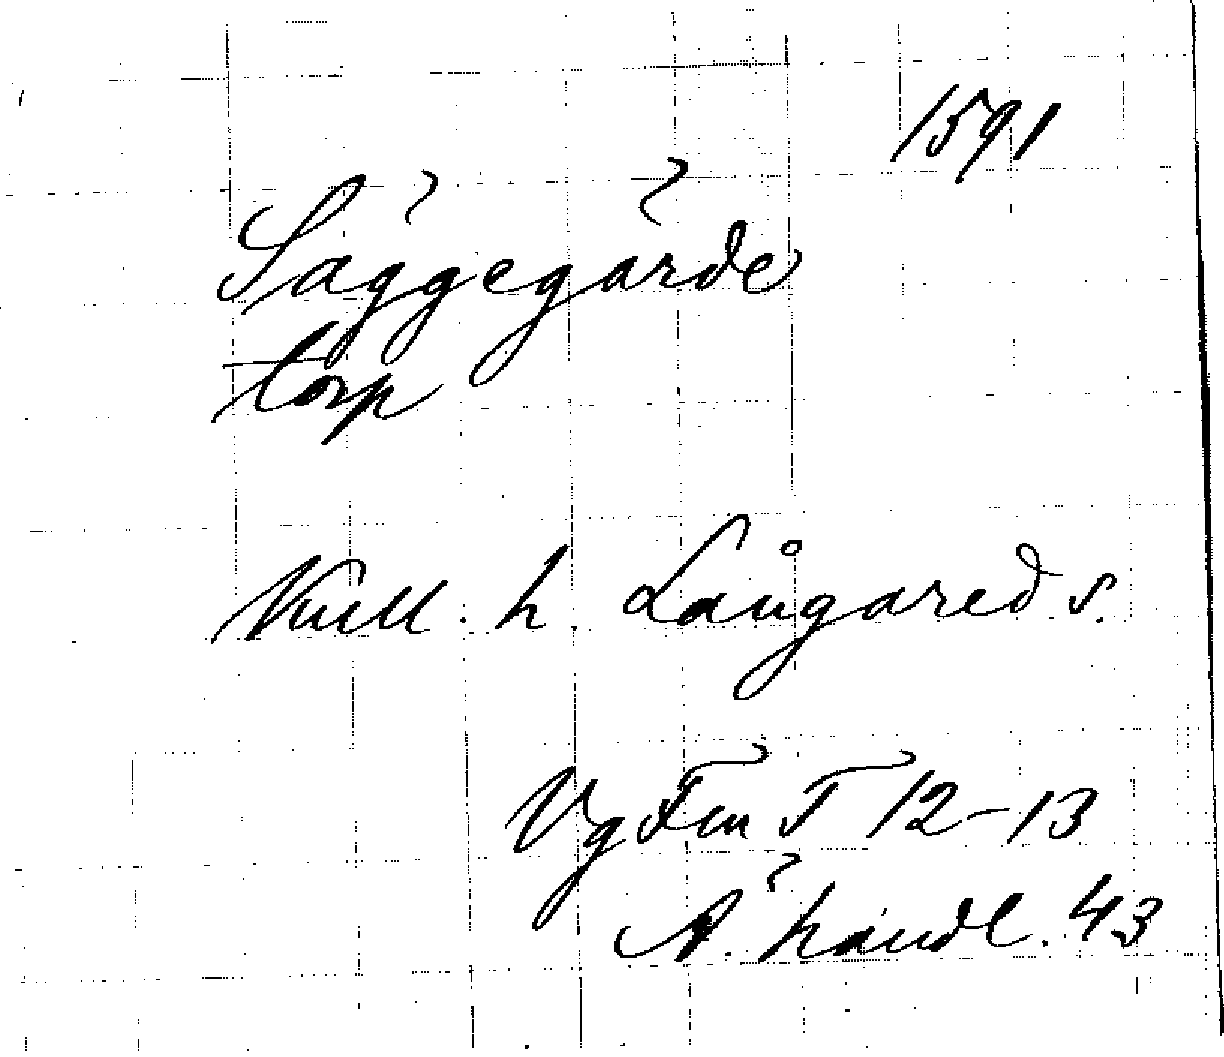 1591
Säggegärde
torp
Kull. h. Långared s.
Vg Fm T 12-13
Ä. handl. 43